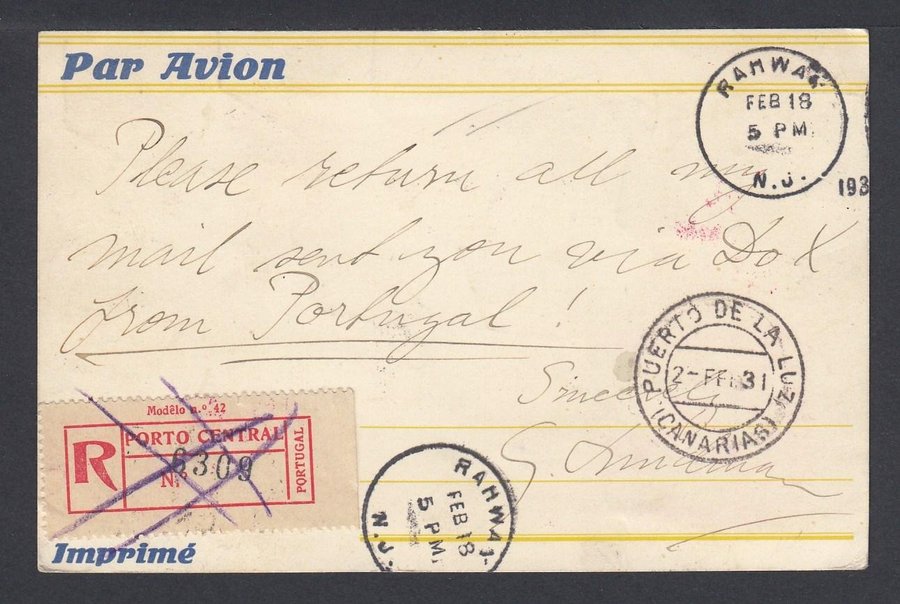 Par Avion
RAHWAY
FEB 18
5 PM
N.J.
193
Please return all my
mail sent you via Do X
from Portugal!
PUERTO DE LA LUZ
2-FEB 31
(CANARIAS)
Sincerely
G.
Modêlo n.º 42
R
PORTO CENTRAL
N.º 6309
PORTUGAL
RAHWAY
FEB 18
5 PM
N.J.
Imprimé